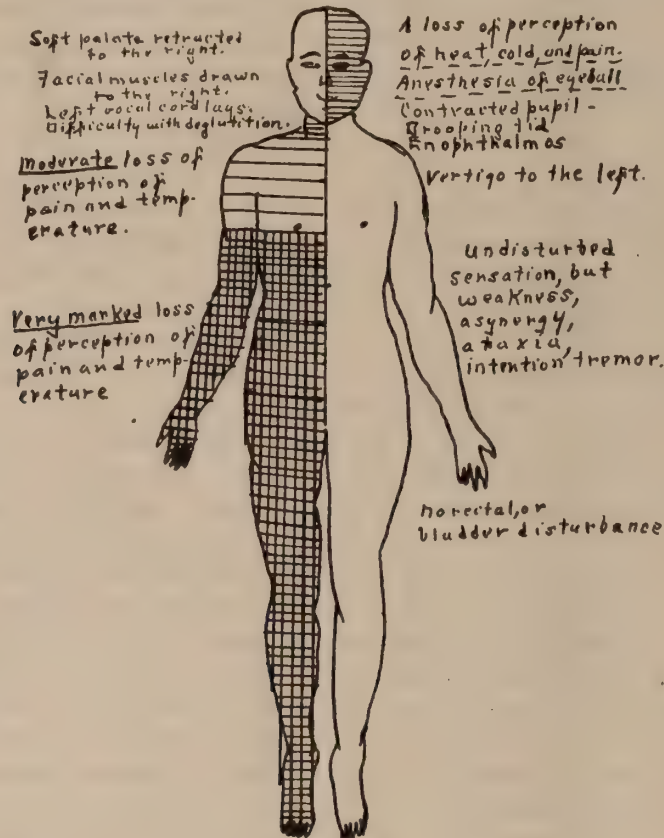 Soft palate retracted
to the right.
Facial muscles drawn
to the right.
Left vocal cord lags.
Difficulty with deglutition.
moderate loss of
perception of
pain and temp-
erature.
Very marked loss
of perception of
pain and temp-
erature
A loss of perception
of heat, cold, and pain.
Anesthesia of eyeball
Contracted pupil -
Drooping lid
Enophthalmos
Vertigo to the left.
Undisturbed
sensation, but
weakness,
asynergy,
ataxia,
intention tremor.
no rectal, or
bladder disturbance